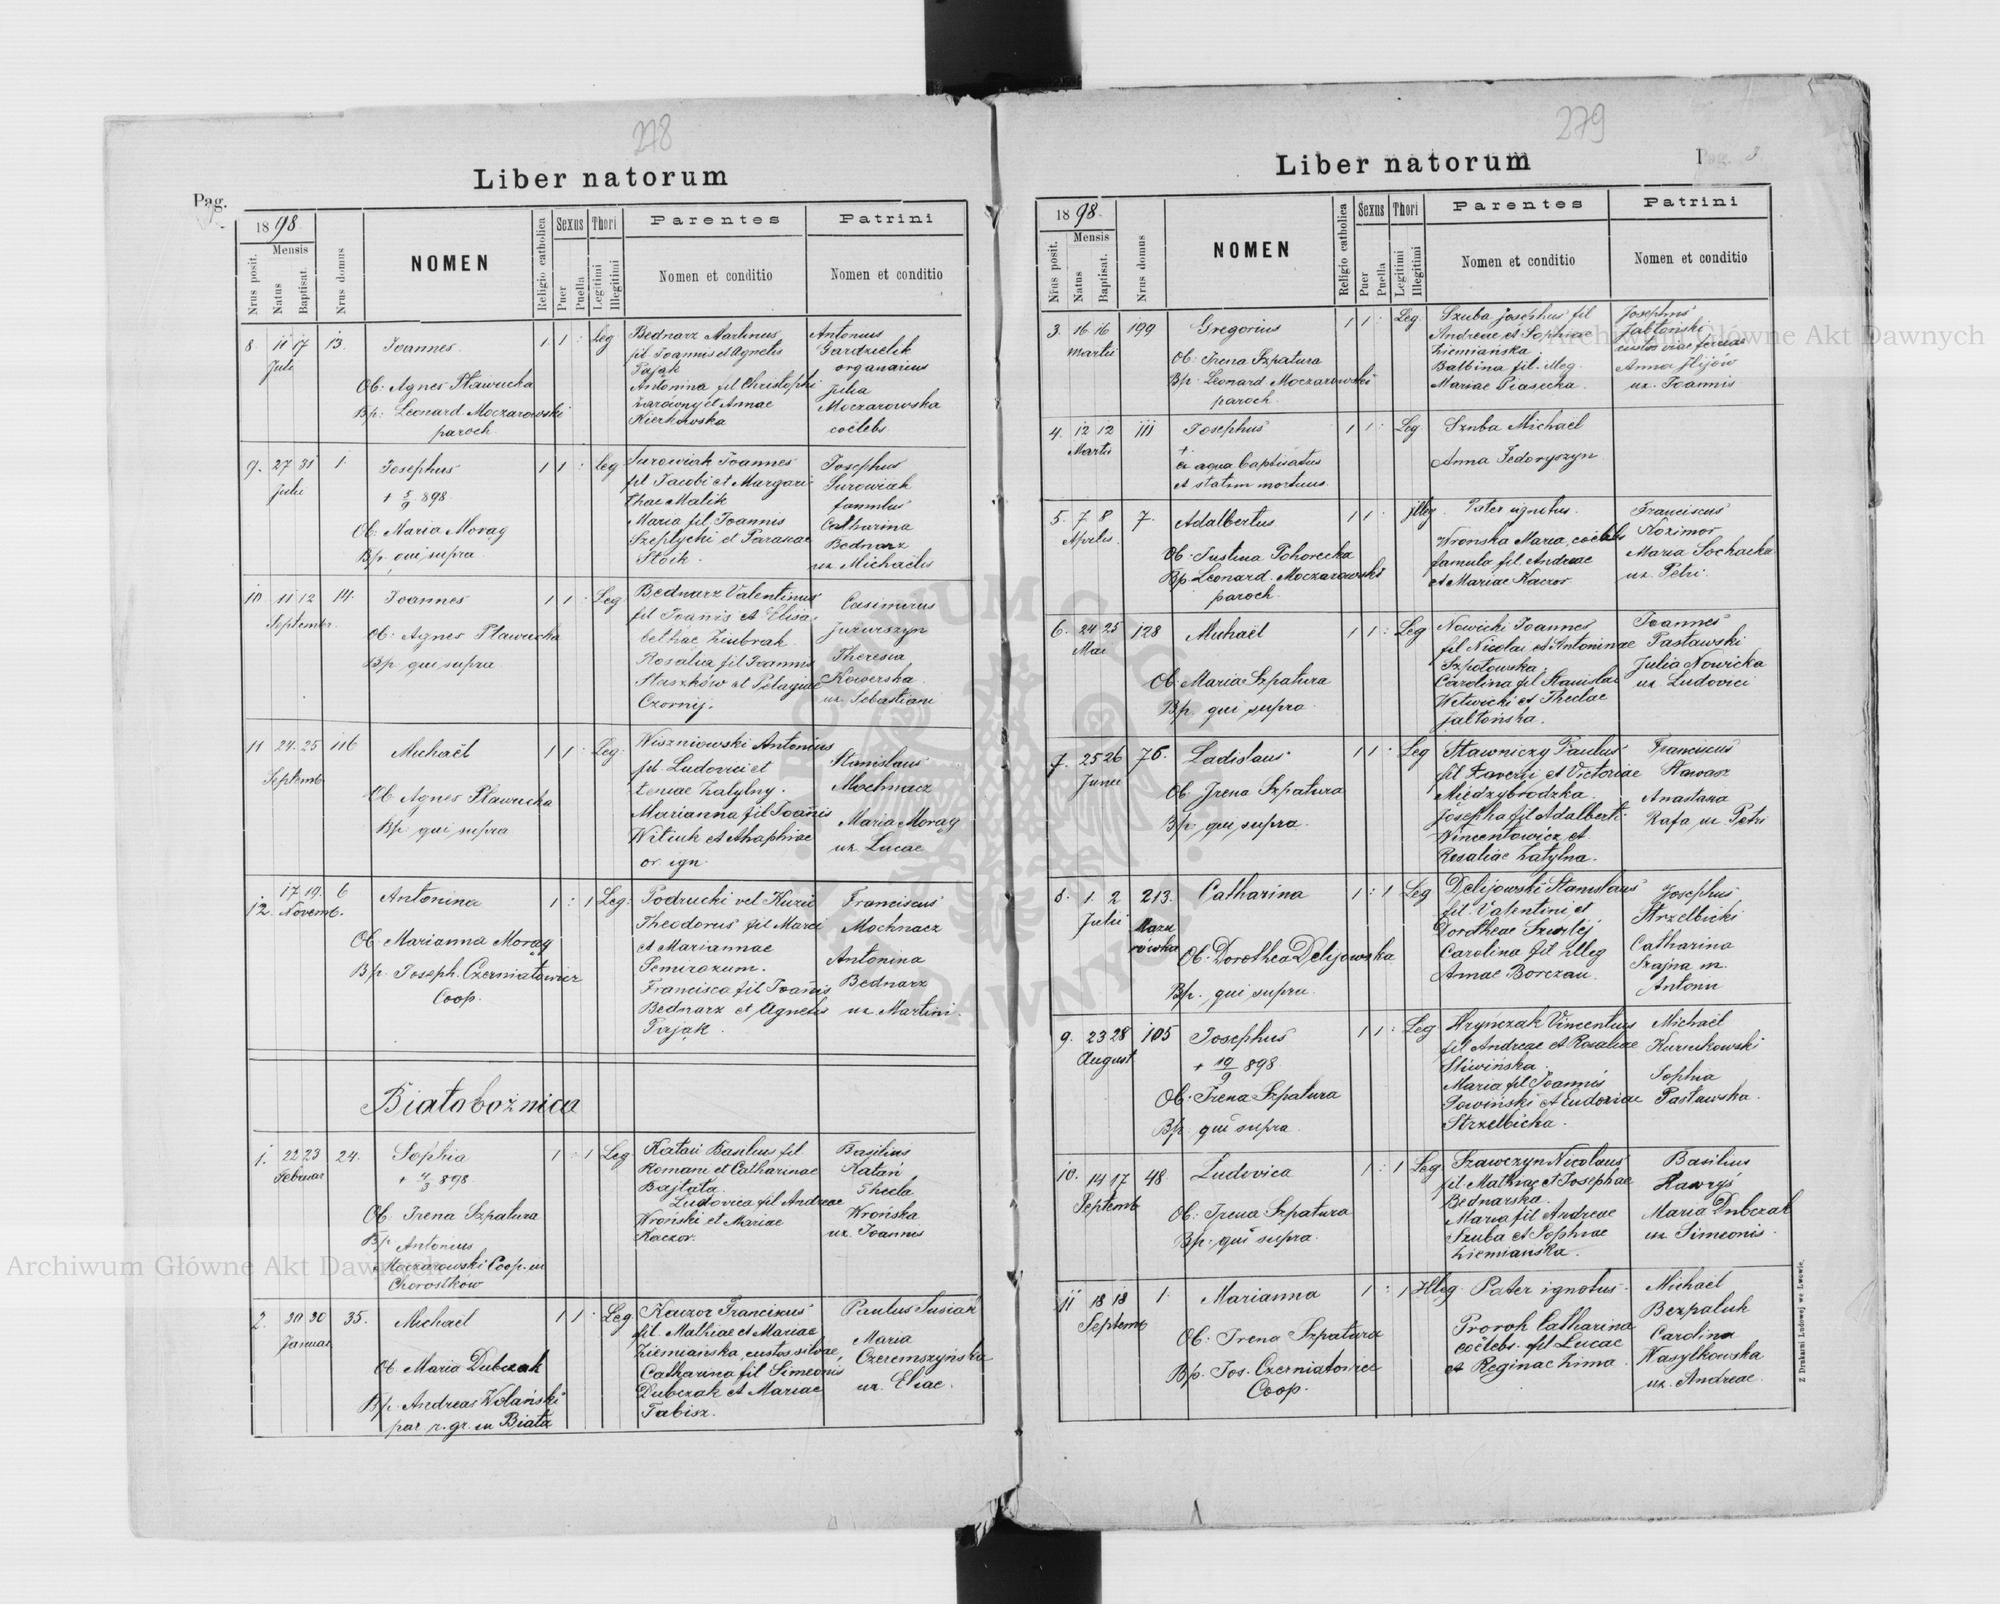 278
Liber natorum
Pag.
1898
Mensis
Nrus posit.
Natus
Baptisat.
Nrus domus
NOMEN
Religio catholica
Sexus
Puer
Puella
Thori
Legitimi
Illegitimi
Parentes
Nomen et conditio
Patrini
Nomen et conditio
8. 11 17 13.
Juli
Joannes
Ob: Agnes Pławucka
Bp: Leonard Moczarowski
paroch.
1 1 : Leg
Bednarz Martinus
fil Joannis et Agnetis
Pająk
Antonina fil Christophi
Żarówny et Annae
Kierkowska
Antonius
Gardzielik
organarius
Julia
Moczarowska
coelebs
9. 27 31 1.
Julii
Josephus
+ 5/9 898.
Ob: Maria Morąg
Bp. qui supra
1 1 : Leg
Surowiak Joannes
fil Jacobi et Margari
thae Malik
Maria fil Joannis
Szeptycki et Parasae
Stoik.
Josephus
Surowiak
famulus
Catharina
Bednarz
ux Michaelis
10 11 12 14.
Septembr.
Joannes
Ob: Agnes Pławucka
Bp. qui supra
1 1 : Leg
Bednarz Valentinus
fil Joanis et Elisa
bethae Ziubrak
Rosalia fil Joannis
Staszków et Pelagiae
Czornij.
Casimirus
Juzurszyn
Theresia
Kowerska
ux. Sebastiani
11 24. 25 116
Septemb
Michaël
Ob Agnes Pławucka
Bp: qui supra
1 1 : Leg.
Wiszniowski Antonius
fil. Ludovici et
Xeniae Zatylny.
Marianna fil Joañis
Witiuk et Ahaphiae
or. ign.
Stanislaus
Mochnacz
Maria Morąg
ux. Lucae
12. 17. 19. 6
Novemb.
Antonina
Ob: Marianna Morąg
Bp. Joseph. Czerniatowicz
Coop.
1 : 1 Leg.
Podrucki vel Kuziw
Theodorus fil Marci
et Mariannae
Semirozum.
Francisca fil Joañis
Bednarz et Agnetis
Pająk.
Franciscus
Mochnacz
Antonina
Bednarz
ux Martini.
Białobożnica
1. 22 23 24.
Februar
Sophia
+ 4/3 898
Ob. Irena Szpatura
Bp. Antonius
Moczarowski Coop. in
Chorostków
1 : 1 Leg
Katań Basilius fil
Romani et Catharinae
Bajtała.
Ludovica fil Andreae
Wroński et Mariae
Kaczor.
Basilius
Katań
Thecla
Wrońska
ux. Joannis
2. 30 30 35.
Januar
Michaël
Ob. Maria Dubczak
Bp. Andreas Wolański
par r. gr. in Biała
1 1 : Leg
Kaczor Franciscus
fil. Mathiae et Mariae
Ziemiańska, custos silvae,
Catharina fil Simeonis
Dubczak et Mariae
Fabisz.
Paulus Susiak
Maria
Czeremszyńska
ux. Eliae.
279
Liber natorum
Pag. 3
1898.
Mensis
Nrus posit.
Natus
Baptisat.
Nrus domus
NOMEN
Religio catholica
Sexus
Puer
Puella
Thori
Legitimi
Illegitimi
Parentes
Nomen et conditio
Patrini
Nomen et conditio
3. 16 16 199
Martii
Gregorius
Ob: Irena Szpatura
Bp: Leonard Moczarowski
paroch.
1 1 : Leg.
Szuba Josephus fil
Andreae et Sophiae
Ziemiańska
Balbina fil. illeg.
Mariae Piasecka.
Josephus
Jabłoński
custos viae ferreae
Anna Ilijów
ux. Joannis
4. 12 12 111
Martii
Josephus
+
ex aqua baptisatus
et statim mortuus.
1 1 : Leg.
Szuba Michaël
Anna Fedoryszyn
5. 7 8 7.
Aprilis
Adalbertus
Ob: Justina Pohorecka
Bp. Leonard. Moczarowski
paroch.
1 1 : Illeg.
Pater ignotus.
Wronska Maria, coelebs
famula fil Andreae
et Mariae Kaczor.
Franciscus
Kozimor
Maria Sochacka
ux. Petri.
6. 24 25 128
Mai
Michaël
Ob. Maria Szpatura
Bp. qui supra
1 1 : Leg
Nowicki Joannes
fil Nicolai et Antoninae
Szpotowska.
Carolina fil Stanislai
Witwicki et Theclae
Jabłońska.
Joannes
Pasławski
Julia Nowicka
ux. Ludovici
7. 25 26 76.
Junii
Ladislaus
Ob. Irena Szpatura
Bp. qui supra.
1 1 : Leg
Stawniczy Paulus
fil Xaverii et Victoriae
Międzybrodzka.
Josepha fil Adalberti
Wincentowicz et
Rosaliae Zatylna.
Franciscus
Stawasz
Anastasia
Rafa ux. Petri
8. 1. 2 213.
Julii
Mazu
rówka
Catharina
Ob: Dorothea Delijowska
Bp. qui supra.
1 : 1 Leg
Delijowski Stanislaus
fil. Valentini et
Dorotheae Szwilej
Carolina fil Illeg
Annae Borczau.
Josephus
Strzelbicki
Catharina
Szajna ux.
Antonii
9. 23 28 105
August
Josephus
+ 19/9 898.
Ob. Irena Szpatura
Bp. qui supra.
1 1 : Leg
Hryńczak Vincentius
fil Andreae et Rosaliae
Śliwińska.
Maria fil Joannis
Sowiński et Ludoviae
Strzelbicka.
Michaël
Kurukowski
Sophia
Pasławska.
10. 14 17 48.
Septemb
Ludovica
Ob. Irena Szpatura
Bp. qui supra.
1 : 1 Leg
Szawczyn Nicolaus
fil Mathiae et Josephae
Bednarska.
Maria fil Andreae
Szuba et Sophiae
Ziemianska.
Basilius
Hawryś
Maria Dubczak
ux. Simeonis.
11 18 18 1.
Septemb
Marianna
Ob: Irena Szpatura
Bp. Jos. Czerniatowicz
Coop.
1 : 1 Illeg.
Pater ignotus.
Prorok Catharina
coëlebs. fil Lucae
et Reginae Zima.
Michaël
Bezpaluk
Carolina
Wasylkowska
ux. Andreae
Z Drukarni Ludowej we Lwowie.
Archiwum Główne Akt Dawnych
Archiwum Główne Akt Dawnych